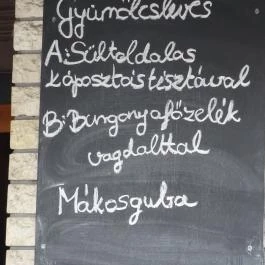 Gyümölcsleves
A: Sült oldalas
káposztás tésztával
B: Burgonyafőzelék
vagdalttal
Mákosguba